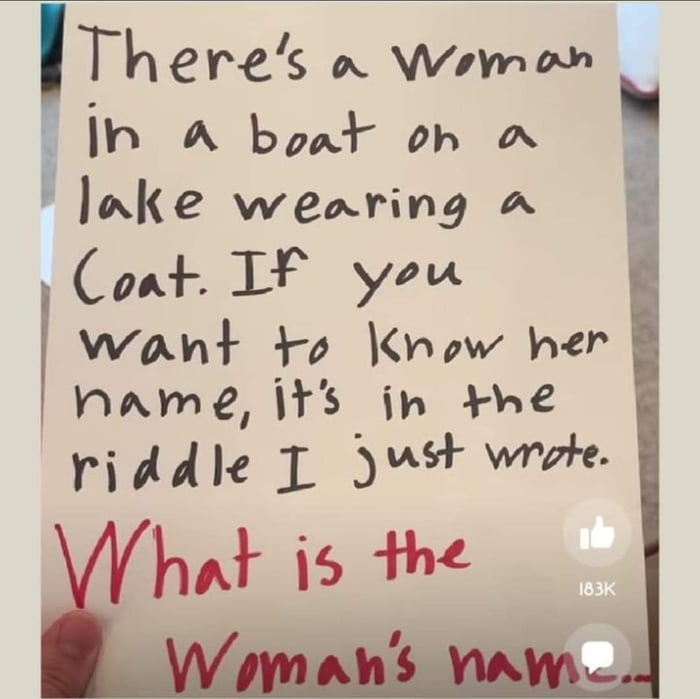 There's a woman
in a boat on a
lake wearing a
Coat. If you
want to know her
name, it's in the
riddle I just wrote.
What is the
183K
Woman's nam...